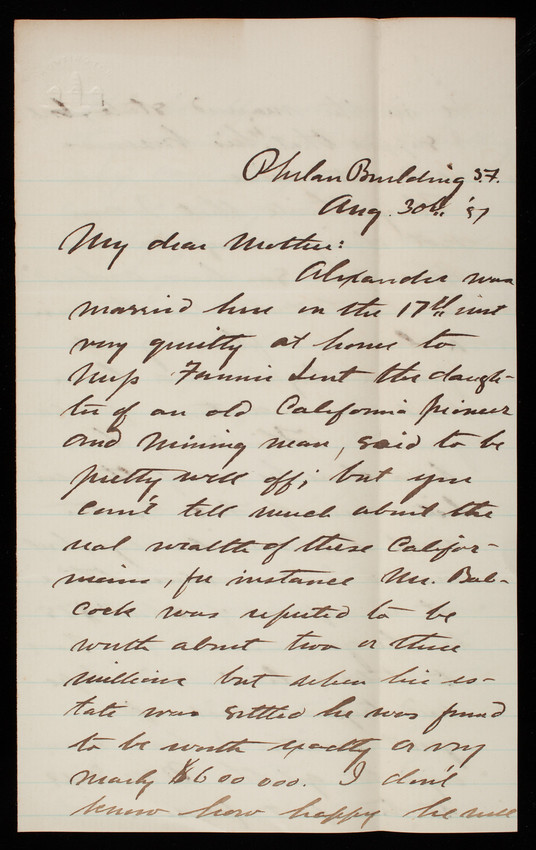 Phelan Building S.F.
Aug. 30th '87
My dear Mother:
Alexander was
married here on the 17th inst
very quietly at home to
Miss Fannie Lent the daugh-
ter of an old California pioneer
and mining man, said to be
pretty well off; but you
can't tell much about the
real wealth of these Califor-
nians, for instance Mr. Bab-
cock was reputed to be
worth about two or three
millions but when his es-
tate was settled he was found
to be worth exactly or very
nearly $600 000. I don't
know how happy he will